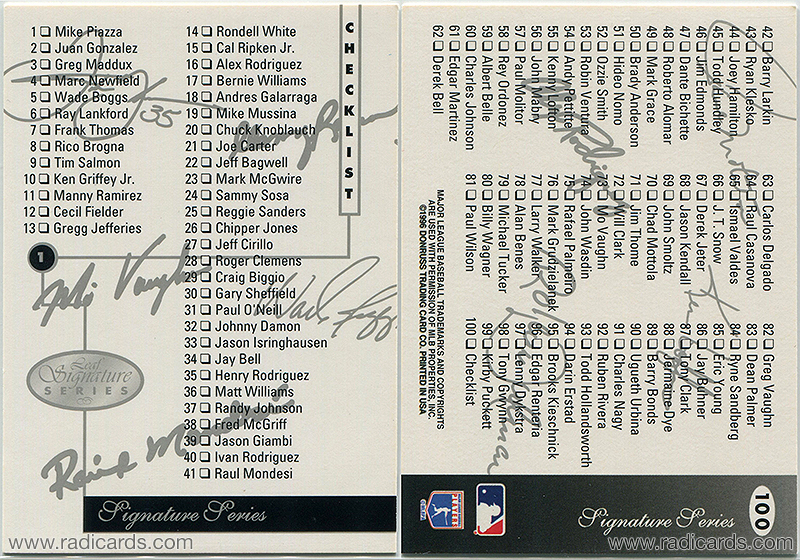 1 Mike Piazza
2 Juan Gonzalez
3 Greg Maddux
4 Marc Newfield
5 Wade Boggs
6 Ray Lankford
7 Frank Thomas
8 Rico Brogna
9 Tim Salmon
10 Ken Griffey Jr.
11 Manny Ramirez
12 Cecil Fielder
13 Gregg Jefferies
14 Rondell White
15 Cal Ripken Jr.
16 Alex Rodriguez
17 Bernie Williams
18 Andres Galarraga
19 Mike Mussina
20 Chuck Knoblauch
21 Joe Carter
22 Jeff Bagwell
23 Mark McGwire
24 Sammy Sosa
25 Reggie Sanders
26 Chipper Jones
27 Jeff Cirillo
28 Roger Clemens
29 Craig Biggio
30 Gary Sheffield
31 Paul O'Neill
32 Johnny Damon
33 Jason Isringhausen
34 Jay Bell
35 Henry Rodriguez
36 Matt Williams
37 Randy Johnson
38 Fred McGriff
39 Jason Giambi
40 Ivan Rodriguez
41 Raul Mondesi
CHECKLIST
1
35
Mo Vaughn
Leaf
Signature
SERIES
Signature Series
www.radicards.com
42 Barry Larkin
43 Ryan Klesko
44 Joey Hamilton
45 Todd Hundley
46 Jim Edmonds
47 Dante Bichette
48 Roberto Alomar
49 Mark Grace
50 Brady Anderson
51 Hideo Nomo
52 Ozzie Smith
53 Robin Ventura
54 Andy Pettitte
55 Kenny Lofton
56 John Mabry
57 Paul Molitor
58 Rey Ordonez
59 Albert Belle
60 Charles Johnson
61 Edgar Martinez
62 Derek Bell
63 Carlos Delgado
64 Raul Casanova
65 Ismael Valdes
66 J.T. Snow
67 Derek Jeter
68 Jason Kendall
69 John Smoltz
70 Chad Mottola
71 Jim Thome
72 Will Clark
73 Mo Vaughn
74 John Wasdin
75 Rafael Palmeiro
76 Mark Grudzielanek
77 Larry Walker
78 Alan Benes
79 Michael Tucker
80 Billy Wagner
81 Paul Wilson
82 Greg Vaughn
83 Dean Palmer
84 Ryne Sandberg
85 Eric Young
86 Jay Buhner
87 Tony Clark
88 Jermaine Dye
89 Barry Bonds
90 Ugueth Urbina
91 Charles Nagy
92 Ruben Rivera
93 Todd Hollandsworth
94 Darin Erstad
95 Brooks Kieschnick
96 Edgar Renteria
97 Lenny Dykstra
98 Tony Gwynn
99 Kirby Puckett
100 Checklist
MAJOR LEAGUE BASEBALL TRADEMARKS AND COPYRIGHTS
ARE USED WITH PERMISSION OF MLB PROPERTIES, INC.
©1996 DONRUSS TRADING CARD CO. PRINTED IN USA
Signature Series
100
www.radicards.com